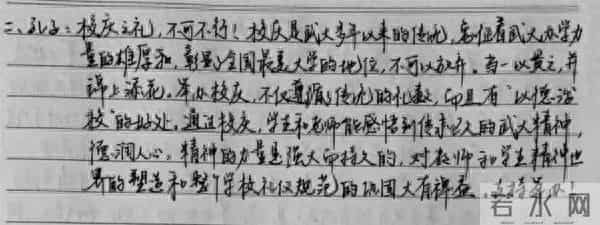 二、孔子：校庆之礼，不可不行！校庆是武大多年以来的传统，象征着武大办学力
量的雄厚和彰显全国最美大学的地位，不可以放弃。当一以贯之，并
锦上添花。举办校庆，不仅遵循了传统的礼数，而且有“以德治
校”的好处。通过校庆，学生和老师能感悟到传承已久的武大精神，
德润人心。精神的力量是强大而持久的，对教师和学生精神世
界的塑造和整个学校礼仪规范的巩固大有裨益。支持举办！
若水网